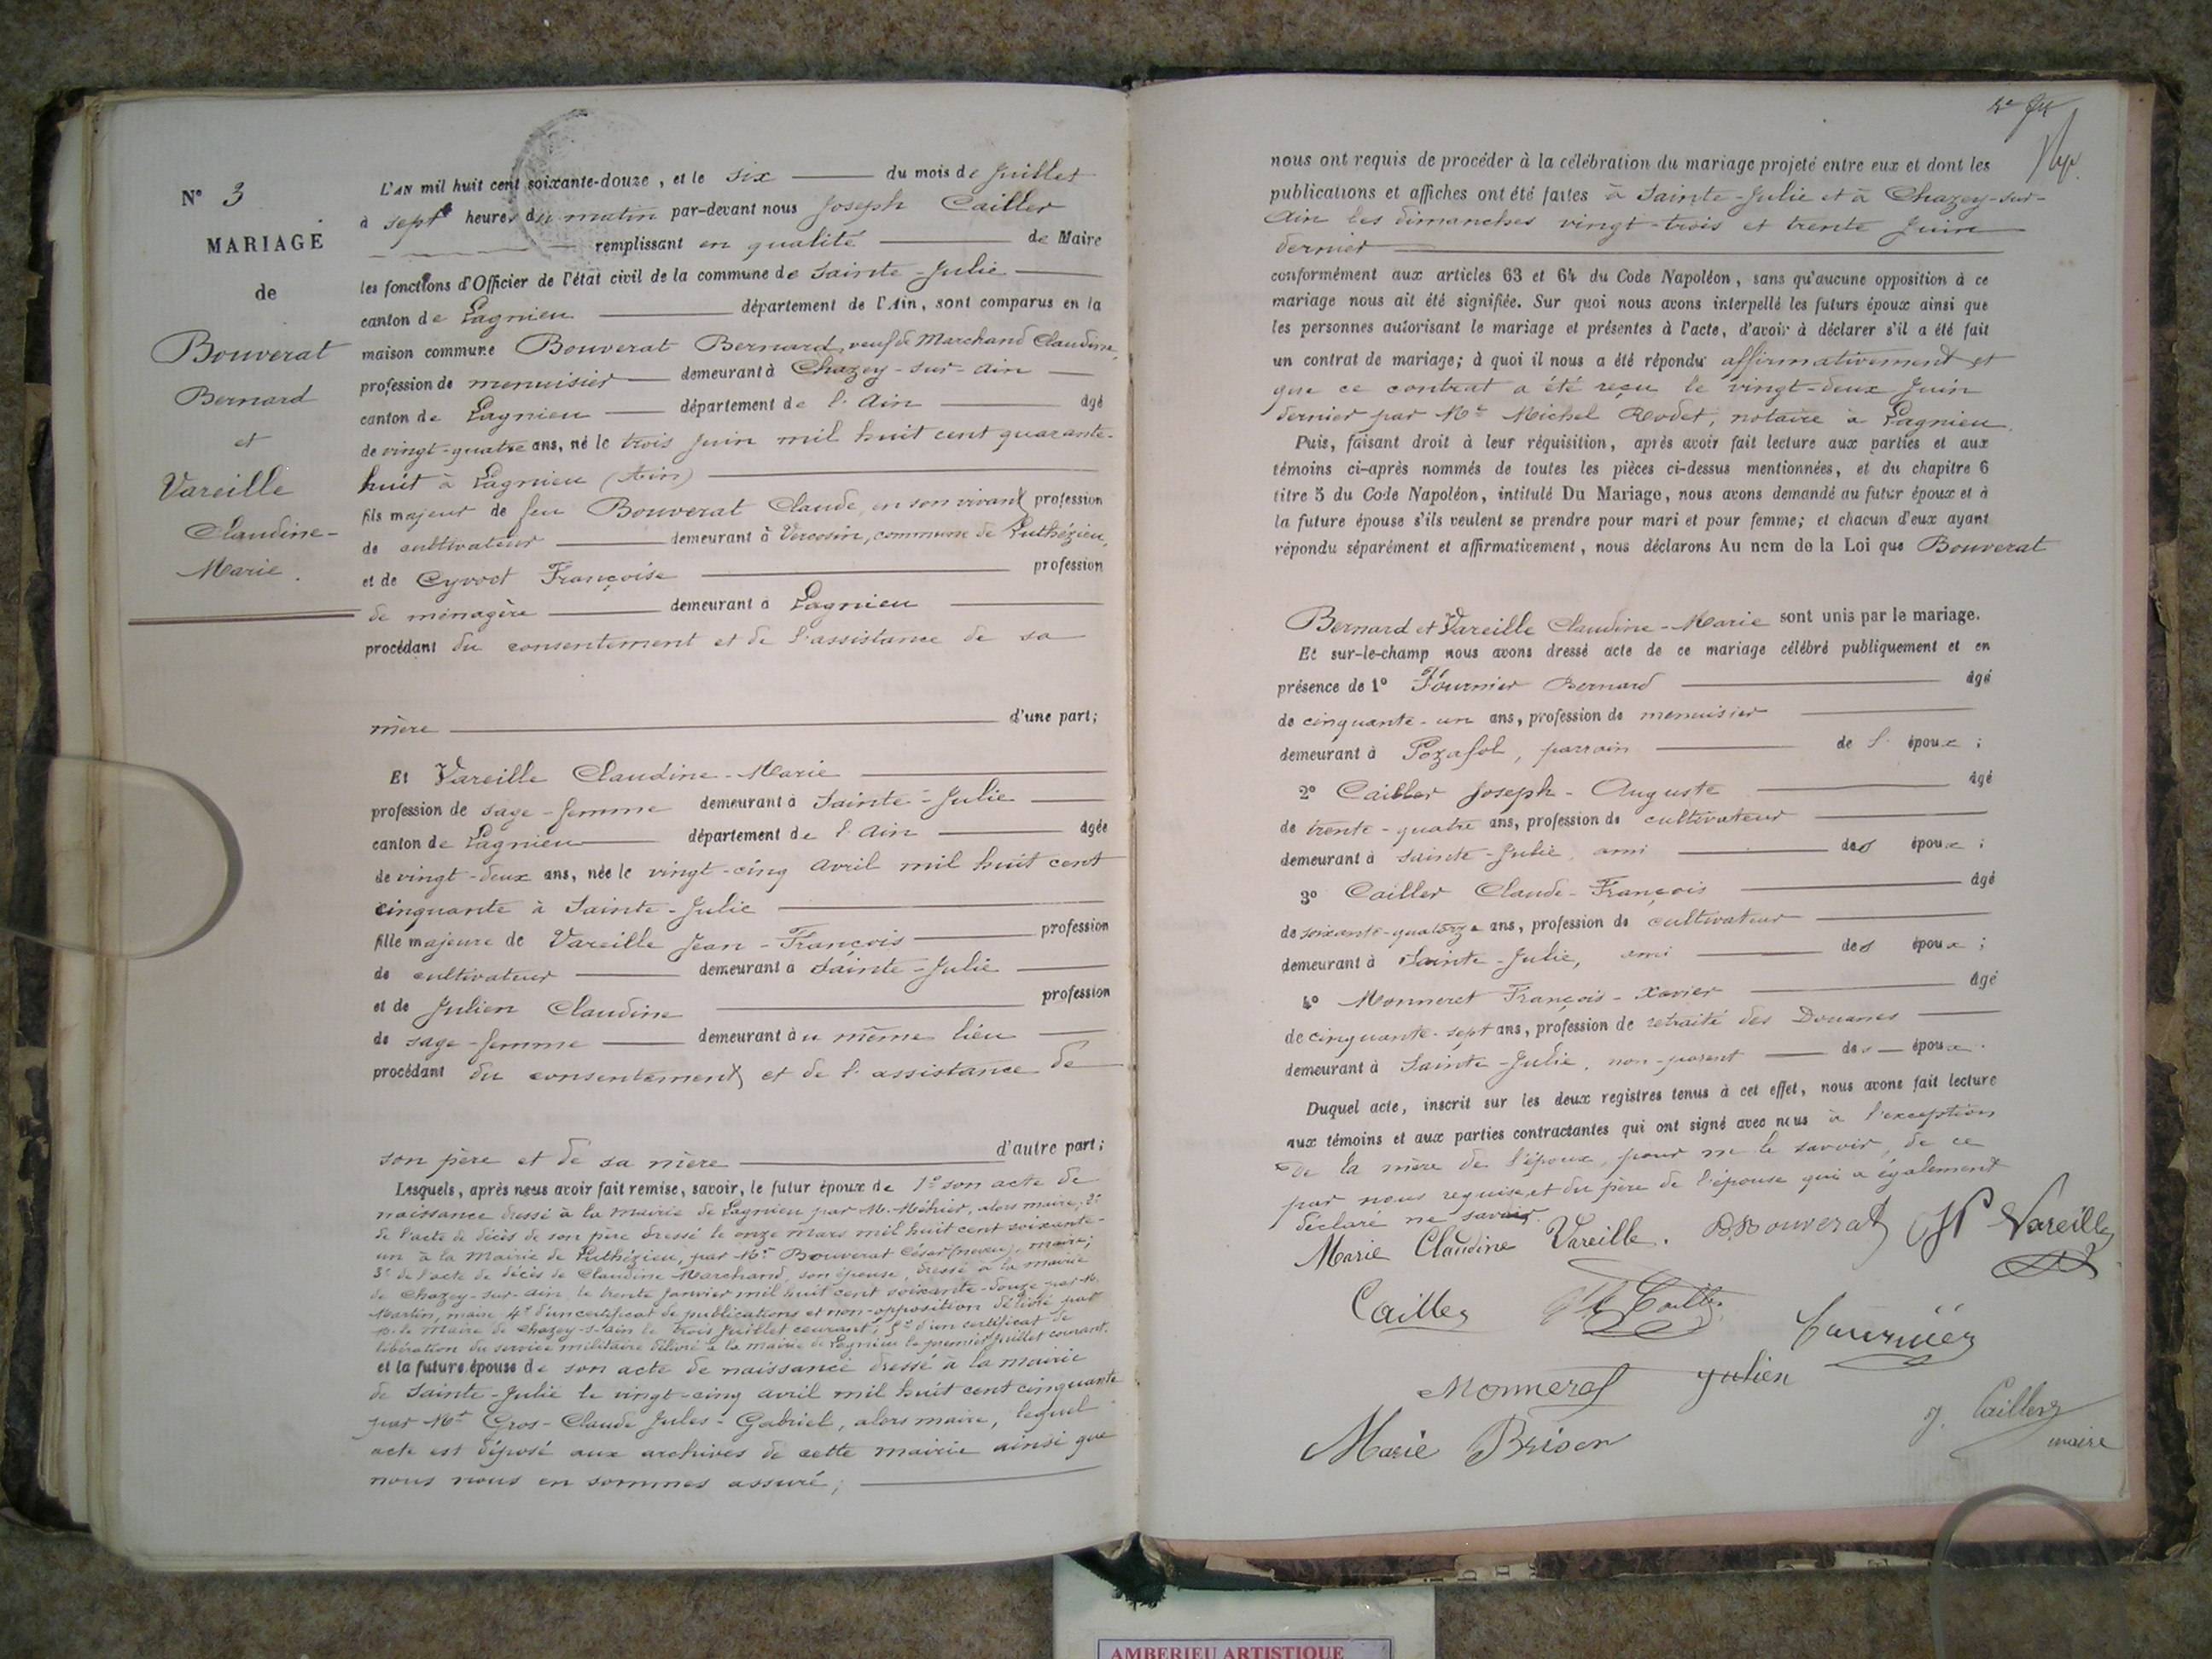 N° 3
MARIAGE
de
Bouverat
Bernard
et
Vareille
Claudine-
Marie.
L'AN mil huit cent soixante-douze, et le six du mois de Juillet
à sept heures du matin par-devant nous Joseph Cailler
remplissant en qualité de Maire
les fonctions d'Officier de l'état civil de la commune de Sainte-Julie
canton de Lagnieu département de l'Ain, sont comparus en la
maison commune Bouverat Bernard, veuf de Marchand Claudine,
profession de menuisier demeurant à Chazey-sur-Ain
canton de Lagnieu département de l'Ain âgé
de vingt-quatre ans, né le trois Juin mil huit cent quarante-
huit à Lagnieu (Ain)
fils majeur de feu Bouverat Claude, en son vivant profession
de cultivateur demeurant à Vercosin, commune de Luthézieu,
et de Cyvoct Françoise profession
de ménagère demeurant à Lagnieu
procédant du consentement et de l'assistance de sa
mère d'une part;
Et Vareille Claudine-Marie
profession de sage-femme demeurant à Sainte-Julie
canton de Lagnieu département de l'Ain âgée
de vingt-deux ans, née le vingt-cinq Avril mil huit cent
cinquante à Sainte-Julie
fille majeure de Vareille Jean-François profession
de cultivateur demeurant à Sainte-Julie
et de Julien Claudine profession
de sage-femme demeurant au même lieu
procédant du consentement et de l'assistance de
son père et de sa mère d'autre part;
Lesquels, après nous avoir fait remise, savoir, le futur époux de 1° son acte de
naissance dressé à la mairie de Lagnieu par M. Méhier, alors maire; 2°
de l'acte de décès de son père dressé le onze mars mil huit cent soixante-
un à la Mairie de Luthézieu, par Mr Bouverat César (neveu), maire;
3° de l'acte de décès de Claudine Marchand, son épouse, dressé à la mairie
de Chazey-sur-Ain le trente Janvier mil huit cent soixante-douze par M.
Martin, maire 4° d'un certificat de publications et non-opposition délivré par
M. le Maire de Chazey-s-Ain le trois Juillet courant; 5° d'un certificat de
libération du service militaire délivré à la mairie de Lagnieu le premier Juillet courant.
et la future épouse de son acte de naissance dressé à la mairie
de Sainte-Julie le vingt-cinq avril mil huit cent cinquante
par Mr Gros-Claude Jules-Gabriel, alors maire, lequel
acte est déposé aux archives de cette mairie ainsi que
nous nous en sommes assuré;
nous ont requis de procéder à la célébration du mariage projeté entre eux et dont les
publications et affiches ont été faites à Sainte-Julie et à Chazey-sur-
Ain les dimanches vingt-trois et trente Juin
dernier
conformément aux articles 63 et 64 du Code Napoléon, sans qu'aucune opposition à ce
mariage nous ait été signifiée. Sur quoi nous avons interpellé les futurs époux ainsi que
les personnes autorisant le mariage et présentes à l'acte, d'avoir à déclarer s'il a été fait
un contrat de mariage; à quoi il nous a été répondu affirmativement et
que ce contrat a été reçu le vingt-deux Juin
dernier par Me Michel Rodet, notaire à Lagnieu.
Puis, faisant droit à leur réquisition, après avoir fait lecture aux parties et aux
témoins ci-après nommés de toutes les pièces ci-dessus mentionnées, et du chapitre 6
titre 5 du Code Napoléon, intitulé Du Mariage, nous avons demandé au futur époux et à
la future épouse s'ils veulent se prendre pour mari et pour femme; et chacun d'eux ayant
répondu séparément et affirmativement, nous déclarons Au nom de la Loi que Bouverat
Bernard et Vareille Claudine-Marie sont unis par le mariage.
Et sur-le-champ nous avons dressé acte de ce mariage célébré publiquement et en
présence de 1° Fournier Bernard âgé
de cinquante-un ans, profession de menuisier
demeurant à Pozafol, parrain de l'époux;
2° Cailler Joseph-Auguste âgé
de trente-quatre ans, profession de cultivateur
demeurant à Sainte-Julie, ami des époux;
3° Cailler Claude-François âgé
de soixante-quatorze ans, profession de cultivateur
demeurant à Sainte-Julie, ami des époux;
4° Monneret François-Xavier âgé
de cinquante-sept ans, profession de retraité des Douanes
demeurant à Sainte-Julie, non-parent des époux.
Duquel acte, inscrit sur les deux registres tenus à cet effet, nous avons fait lecture
aux témoins et aux parties contractantes qui ont signé avec nous à l'exception
de la mère de l'époux, pour ne le savoir, de ce
par nous requise, et du père de l'épouse qui a également
déclaré ne savoir.
Marie Claudine Vareille. B. Bouverat Vareille
Cailler
Fournier
Monneret Julien
Marie Brison
J. Cailler
maire
AMBERIEU ARTISTIQUE